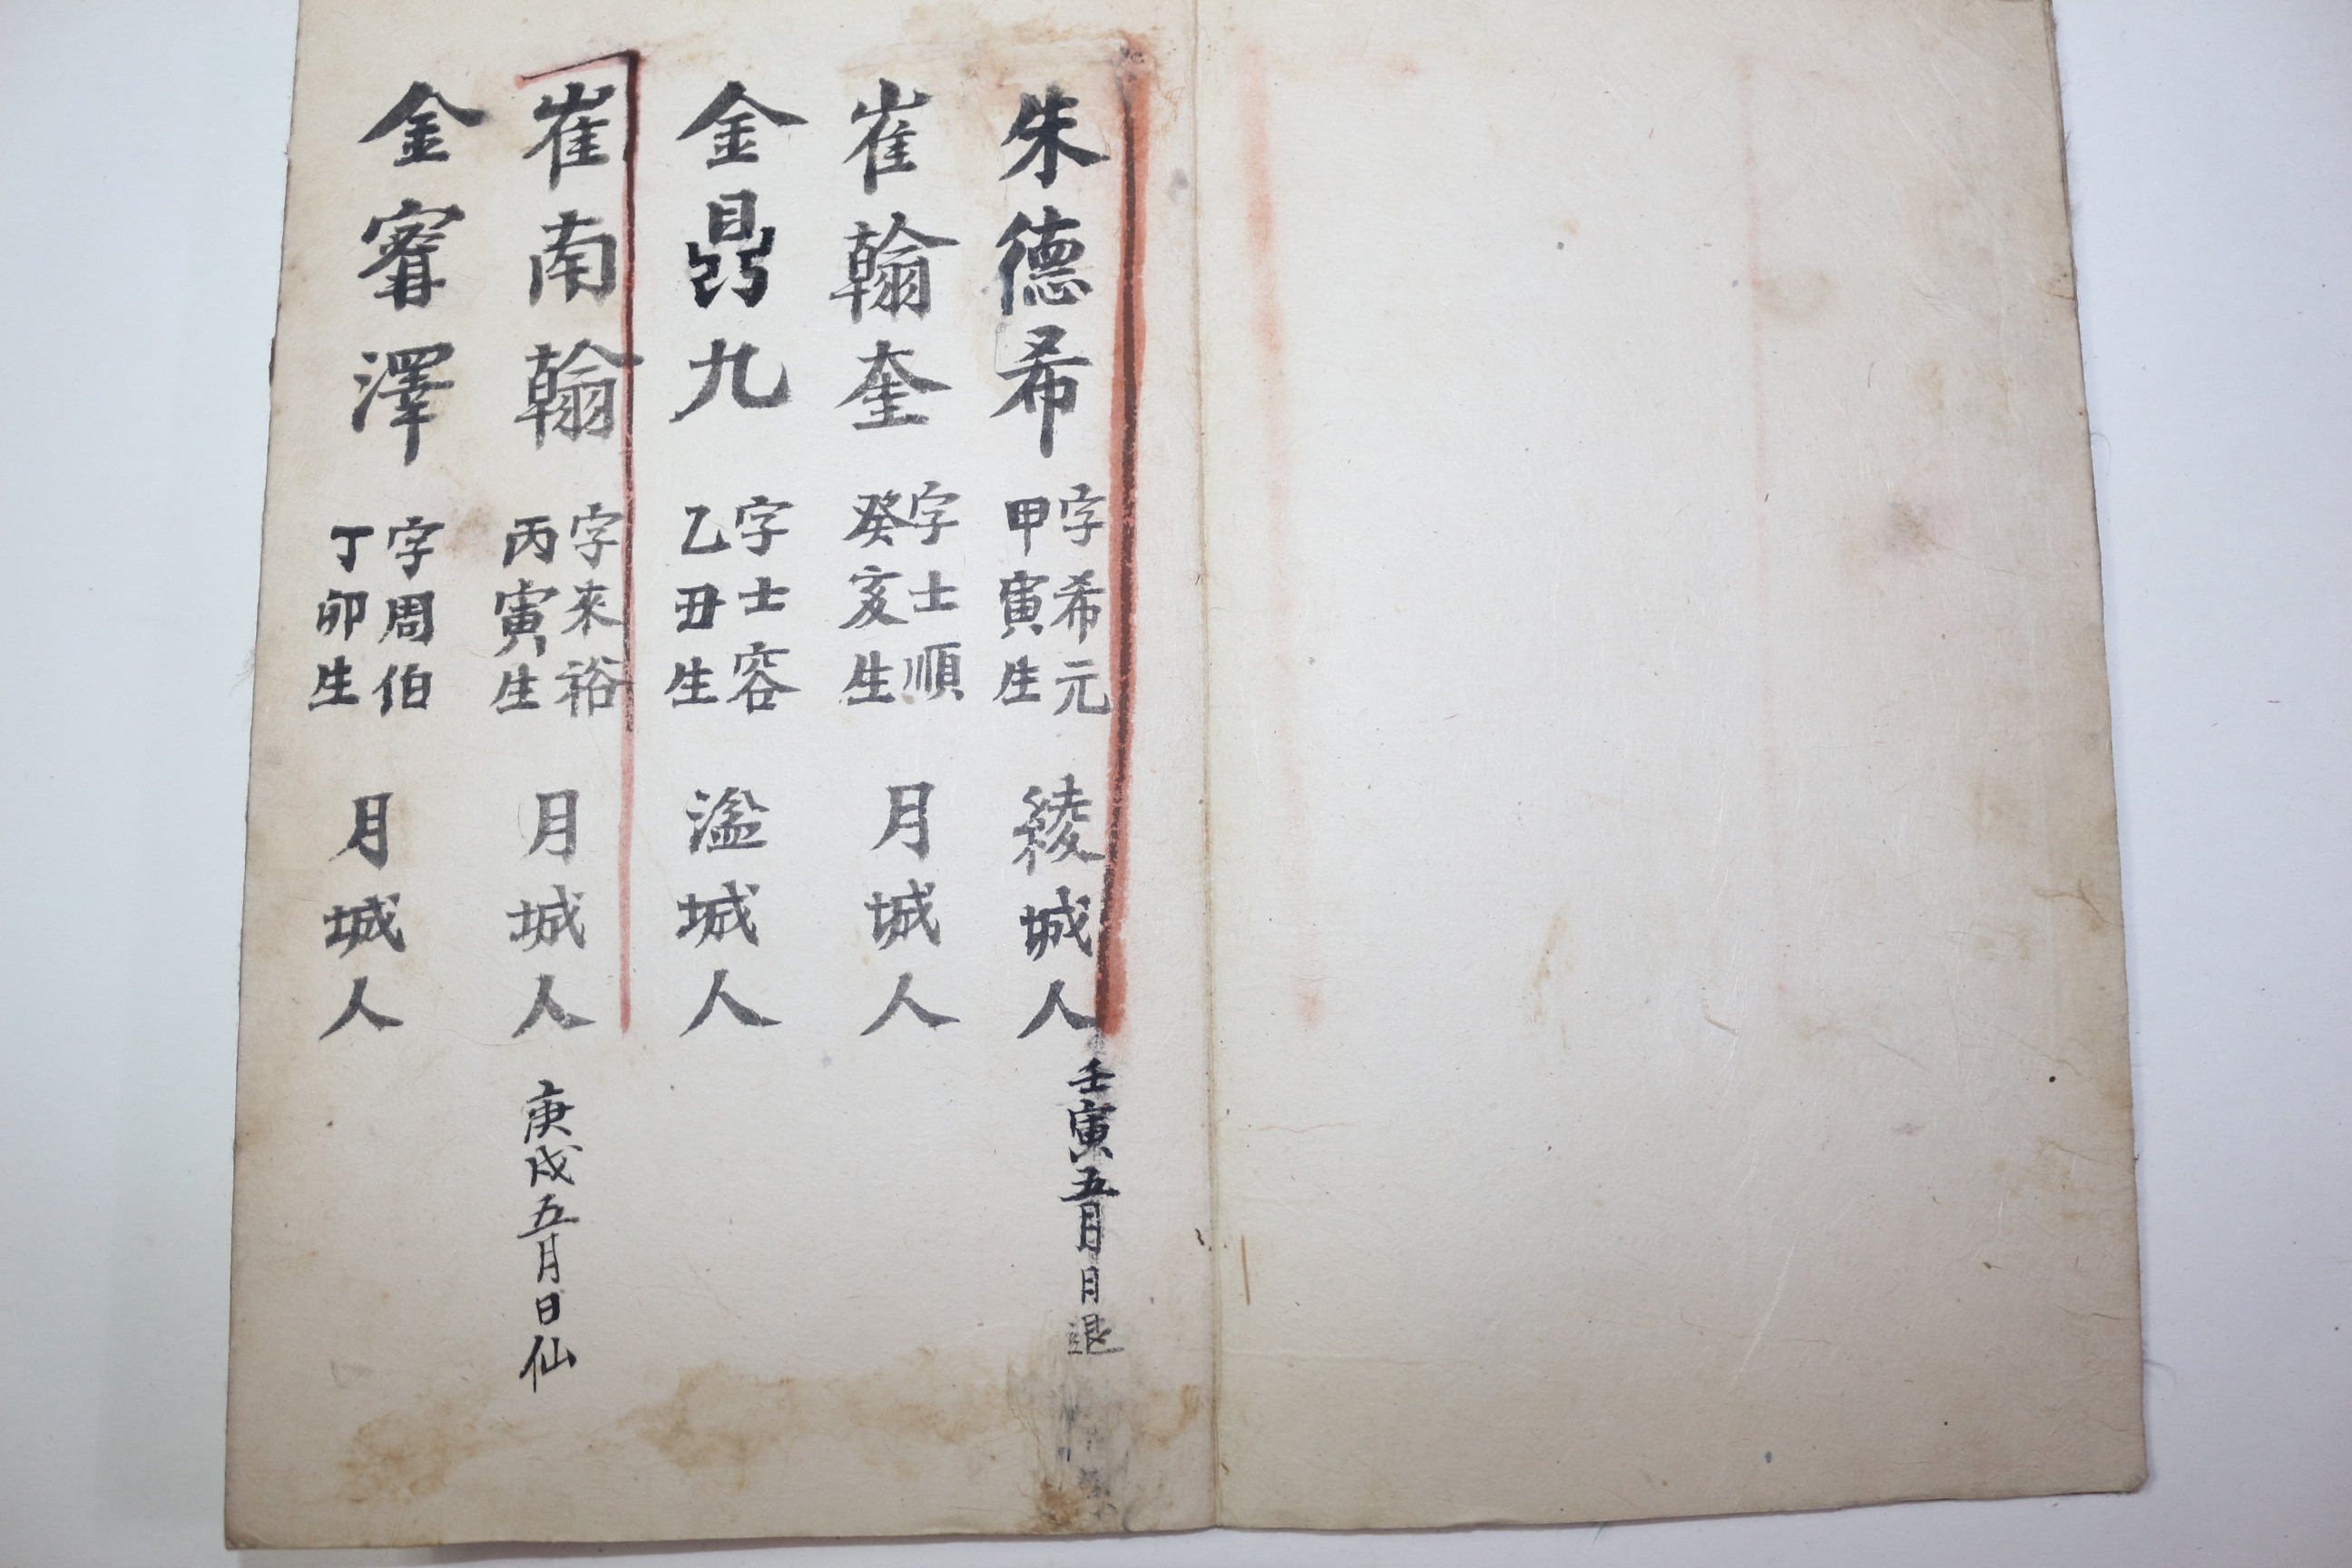 朱德希 字希元 甲寅生 綾城人 壬寅五月日退
崔翰奎 字士順 癸亥生 月城人
金鼎九 字士容 乙丑生 盆城人
崔南翰 字来裕 丙寅生 月城人 庚戌五月日仙
金睿澤 字周伯 丁卯生 月城人